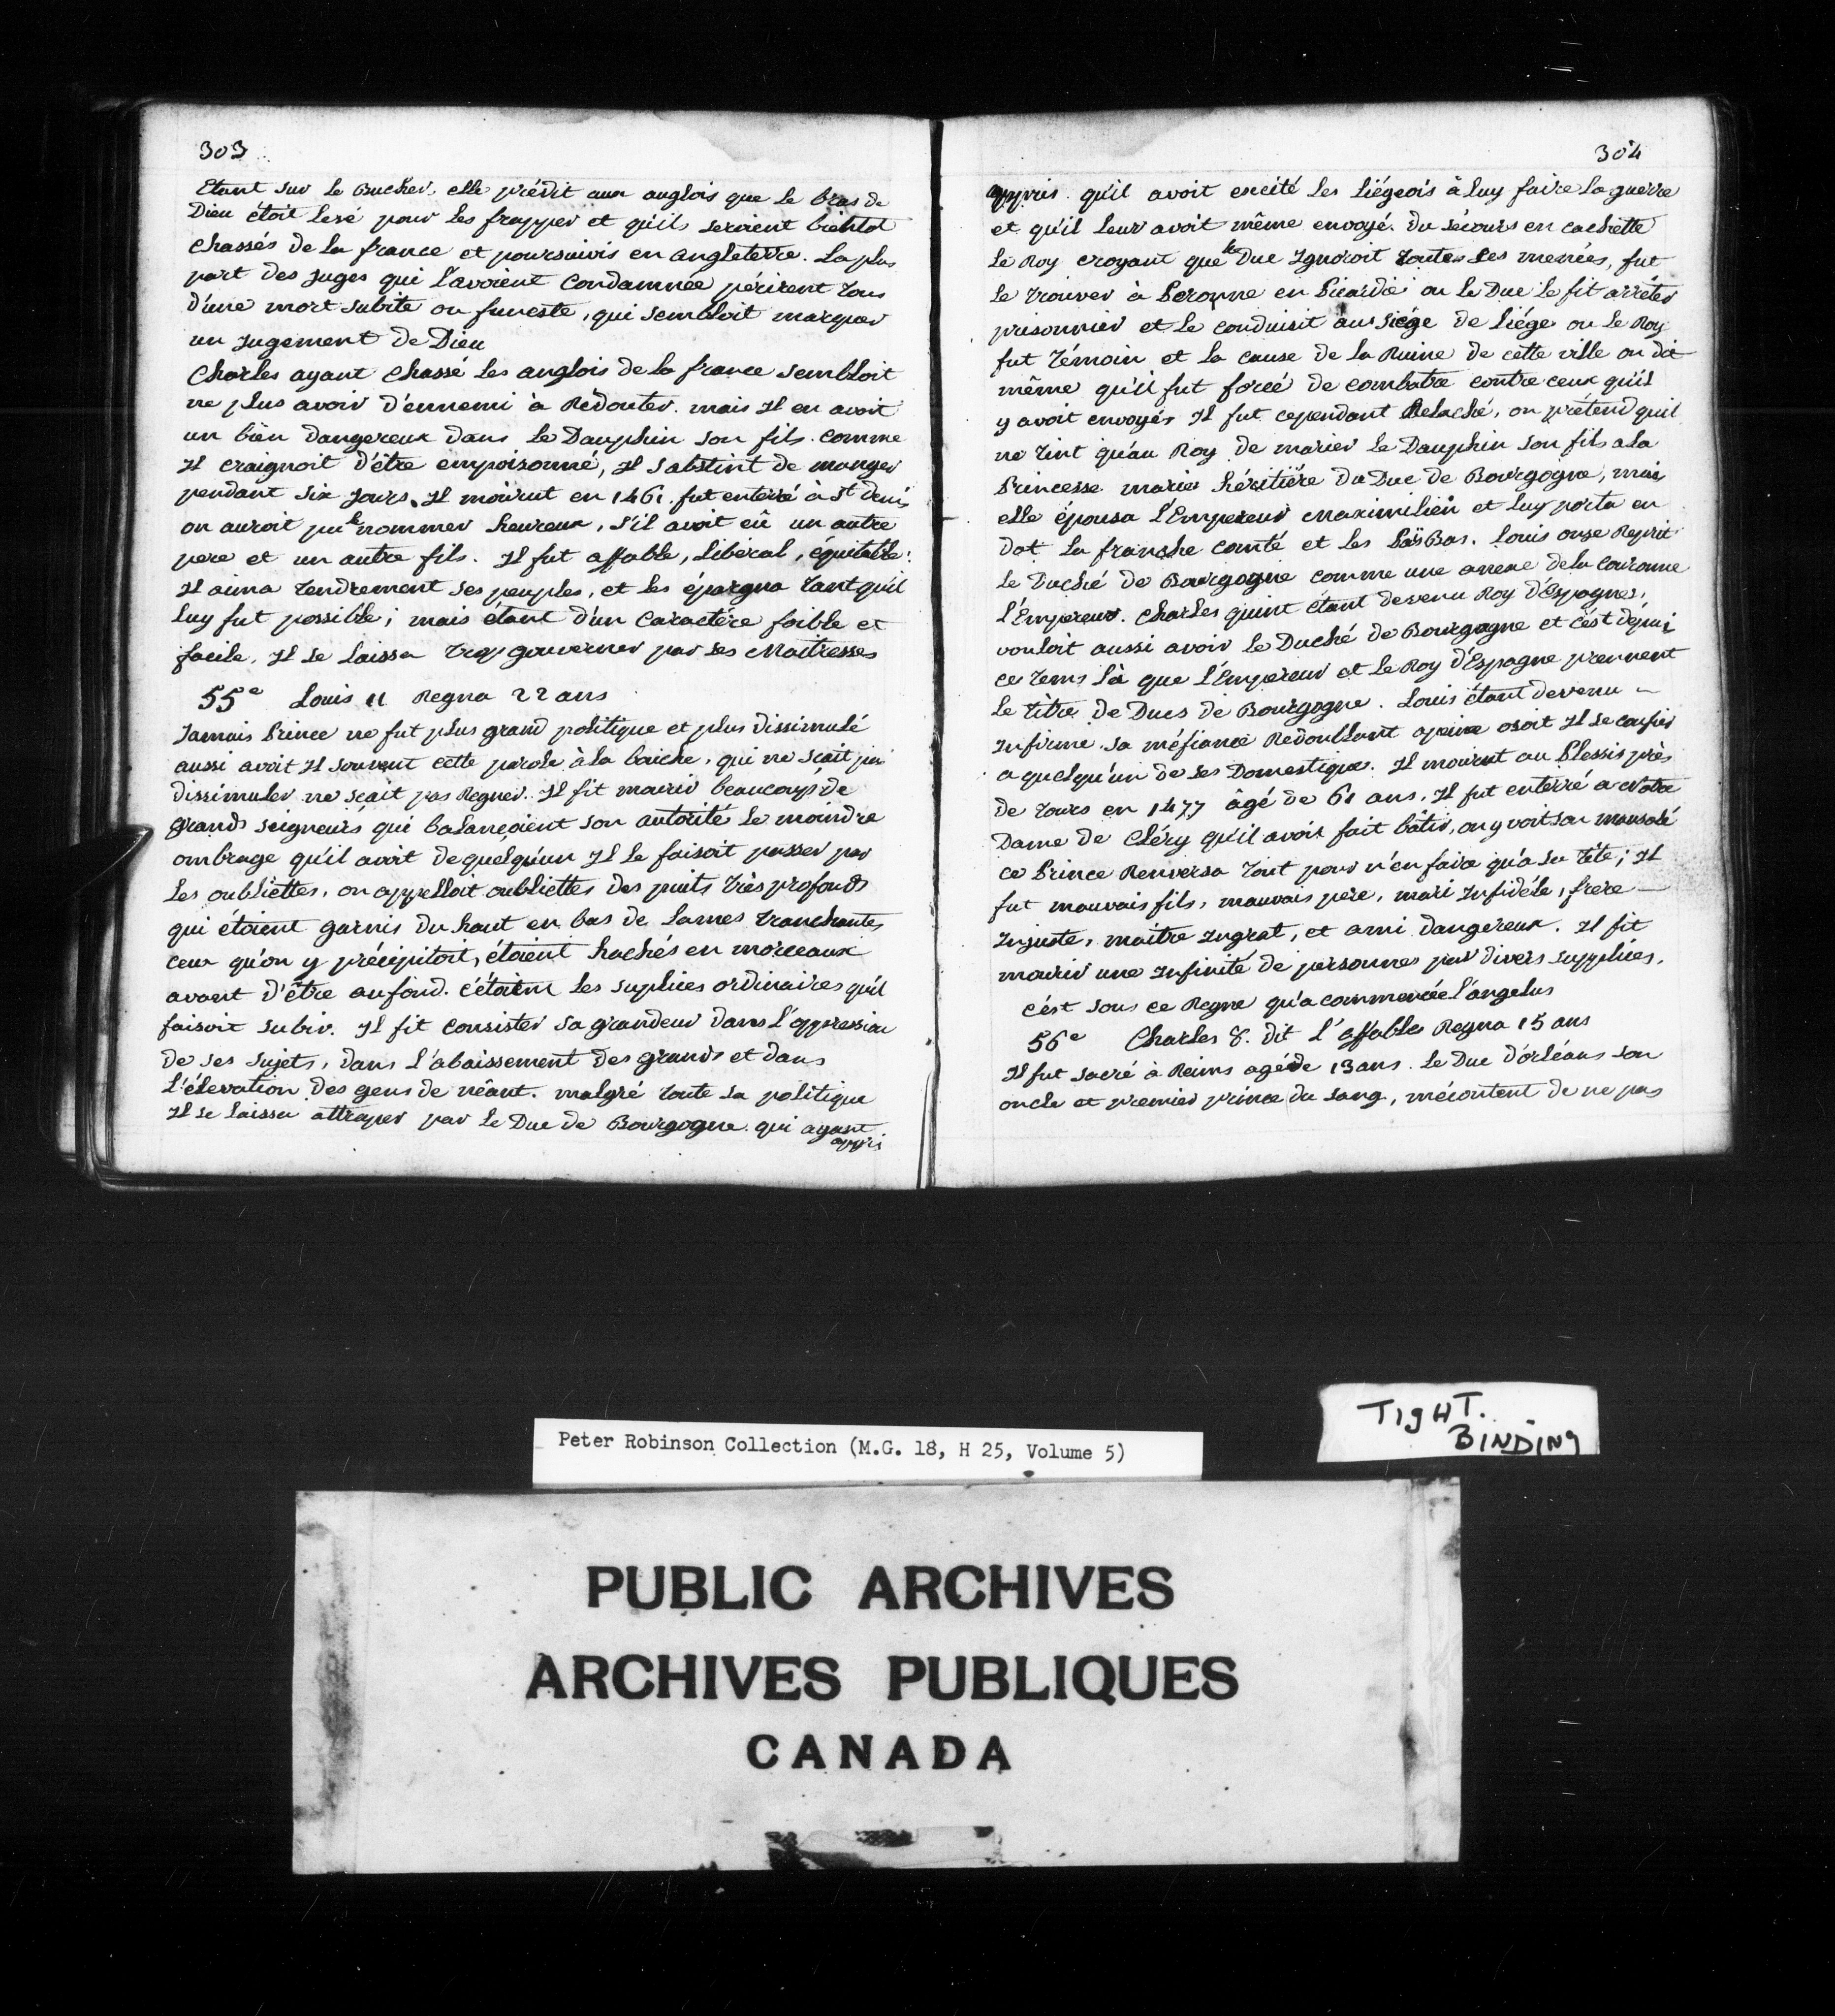 303
Etant sur le Bucher, elle prédit aux anglois que le bras de
Dieu étoit levé pour les frapper et qu'ils seroient bientôt
chassés de la france et poursuivis en angleterre. La plus
part des juges qui l'avoient condamnée périrent tous
d'une mort subite ou funeste, qui sembloit marquer
un jugement de Dieu
Charles ayant chassé les anglois de la france sembloit
ne plus avoir d'ennemi à Redouter. mais Il en avoit
un bien dangereux dans le Dauphin son fils. comme
Il craignoit d'être empoisonné, Il s'abstint de manger
pendant six jours. Il mourut en 1461. fut enterré à St denis
on auroit pu le nommer heureux, s'il avoit eû un autre
pere et un autre fils. Il fut affable, libéral, équitable.
Il aima tendrement ses peuples, et les épargna tant qu'il
luy fut possible; mais étant d'un caractére foible et
facile, Il se laissa trop gouverner par ses Maitresses
55e Louis 11 Regna 22 ans
Jamais Prince ne fut plus grand politique et plus dissimulé
aussi avoit Il souvent cette parole à la bouche, qui ne sçait pas
dissimuler ne sçait pas Regner. Il fit mourir beaucoup de
grands seigneurs qui balançoient son autorité le moindre
ombrage qu'il avoit de quelqu'un Il le faisoit passer par
les oubliettes, on appelloit oubliettes des puits très profonds
qui étoient garnis du haut en bas de lames tranchantes
ceux qu'on y précipitoit, étoient hachés en morceaux
avant d'être au fond. c'étoient les suplices ordinaires qu'il
faisoit subir. Il fit consister sa grandeur dans l'oppression
de ses sujets, dans l'abaissement des grands et dans
l'élevation des gens de néant. malgré toute sa politique
Il se laissa attraper par le Duc de Bourgogne qui ayant
appris
304
appris qu'il avoit excité les liégeois à luy faire la guerre
et qu'il leur avoit même envoyé du sécours en cachette
le Roy croyant que le Duc Ignoroit toutes ses menées, fut
le trouver à Peronne en Picardie ou le Duc le fit arrêter
prisonnier et le conduisit au siége de liége ou le Roy
fut témoin et la cause de la Ruine de cette ville on dit
même qu'il fut forcé de combatre contre ceux qu'il
y avoit envoyés Il fut cependant Relaché, on prétend qu'il
ne tint qu'au Roy de marier le Dauphin son fils a la
Princesse marie héritiére du Duc de Bourgogne, mais
elle épousa l'Empereur Maximilien et luy porta en
dot la franche comté et les PaïsBas. Louis onze Reprit
le Duché de Bourgogne comme une anexe de la couronne
l'Empereur. Charles quint étant devenu Roy d'Espagne,
vouloit aussi avoir le Duché de Bourgogne et c'est depuis
ce tems là que l'Empereur et le Roy d'Espagne prennent
le titre de Ducs de Bourgogne. Louis étant devenu
Infirme. sa méfiance Redoublant a peine osoit Il se confier
a quelqu'un de ses Domestiques. Il mourut au Plessis près
de tours en 1477 âgé de 61 ans. Il fut enterré a Notre
Dame de Cléry qu'il avoit fait bâtir, on y voit son mausolé
ce Prince Renversa tout pour n'en faire qu'a sa tête; Il
fut mauvais fils, mauvais père, mari Infidéle, frere
Injuste, maitre Ingrat, et ami dangereux. Il fit
mourir une Infinité de personnes par divers supplices.
c'est sous ce Regne qu'a commencée l'angelus
56e Charles 8. dit l'affable Regna 15 ans
Il fut sacré à Reims agé de 13 ans. Le Duc d'orléans son
oncle et premier prince du sang, mécontent de ne pas
TIGHT.
BINDING
Peter Robinson Collection (M.G. 18, H 25, Volume 5)
PUBLIC ARCHIVES
ARCHIVES PUBLIQUES
CANADA